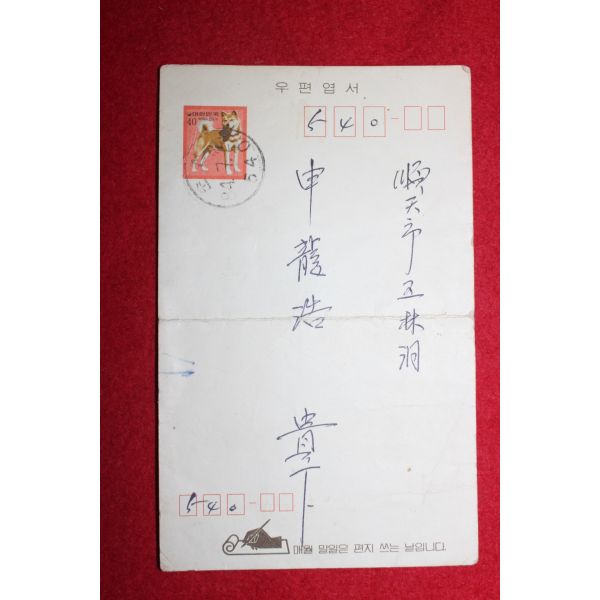 우편엽서
대한민국
40
540
順天市 五林洞
申龍浩 貴下
540
매월 말일은 편지 쓰는 날입니다.